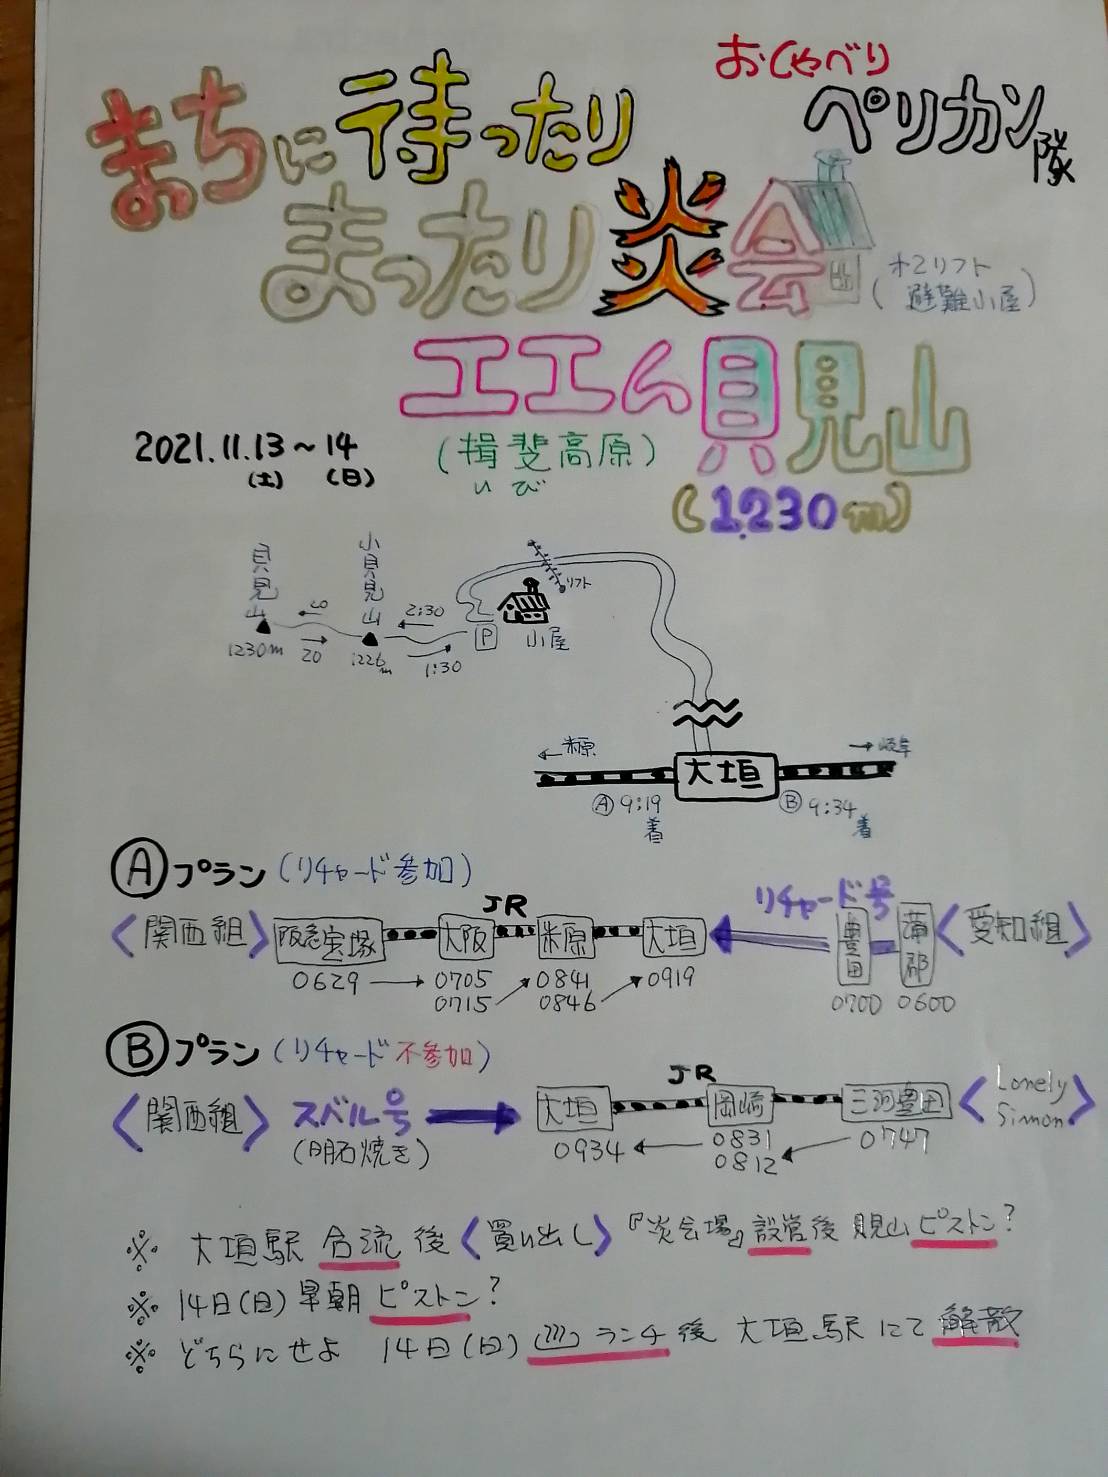 おしゃべり
ペリカン隊
まちに待ったり
まったり炎会
(オ2リフト
避難小屋)
エエん貝見山
2021.11.13～14
(土) (日)
(揖斐高原)
いび
(1230m)
貝見山
小貝見山
リフト
20
2:30
P
小屋
1230m
20
1226m
1:30
←米原
→岐阜
大垣
Ⓐ9:19着
Ⓑ9:34着
Ⓐプラン(リチャード参加)
JR
リチャード号
<関西組> 阪急宝塚 大阪 米原 大垣 豊田 蒲郡 <愛知組>
0629 → 0705 0841 0919 0700 0600
0715 0846
Ⓑプラン(リチャード不参加)
JR
<関西組> スバル号 大垣 岡崎 三河豊田 <Lonely Simon>
(明石焼き) 0934 0831 0747
0812
※ 大垣駅 合流後 <買い出し> 『炎会場』設営後 貝見山ピストン?
※ 14日(日)早朝 ピストン?
※ どちらにせよ 14日(日) ランチ後 大垣駅にて 解散